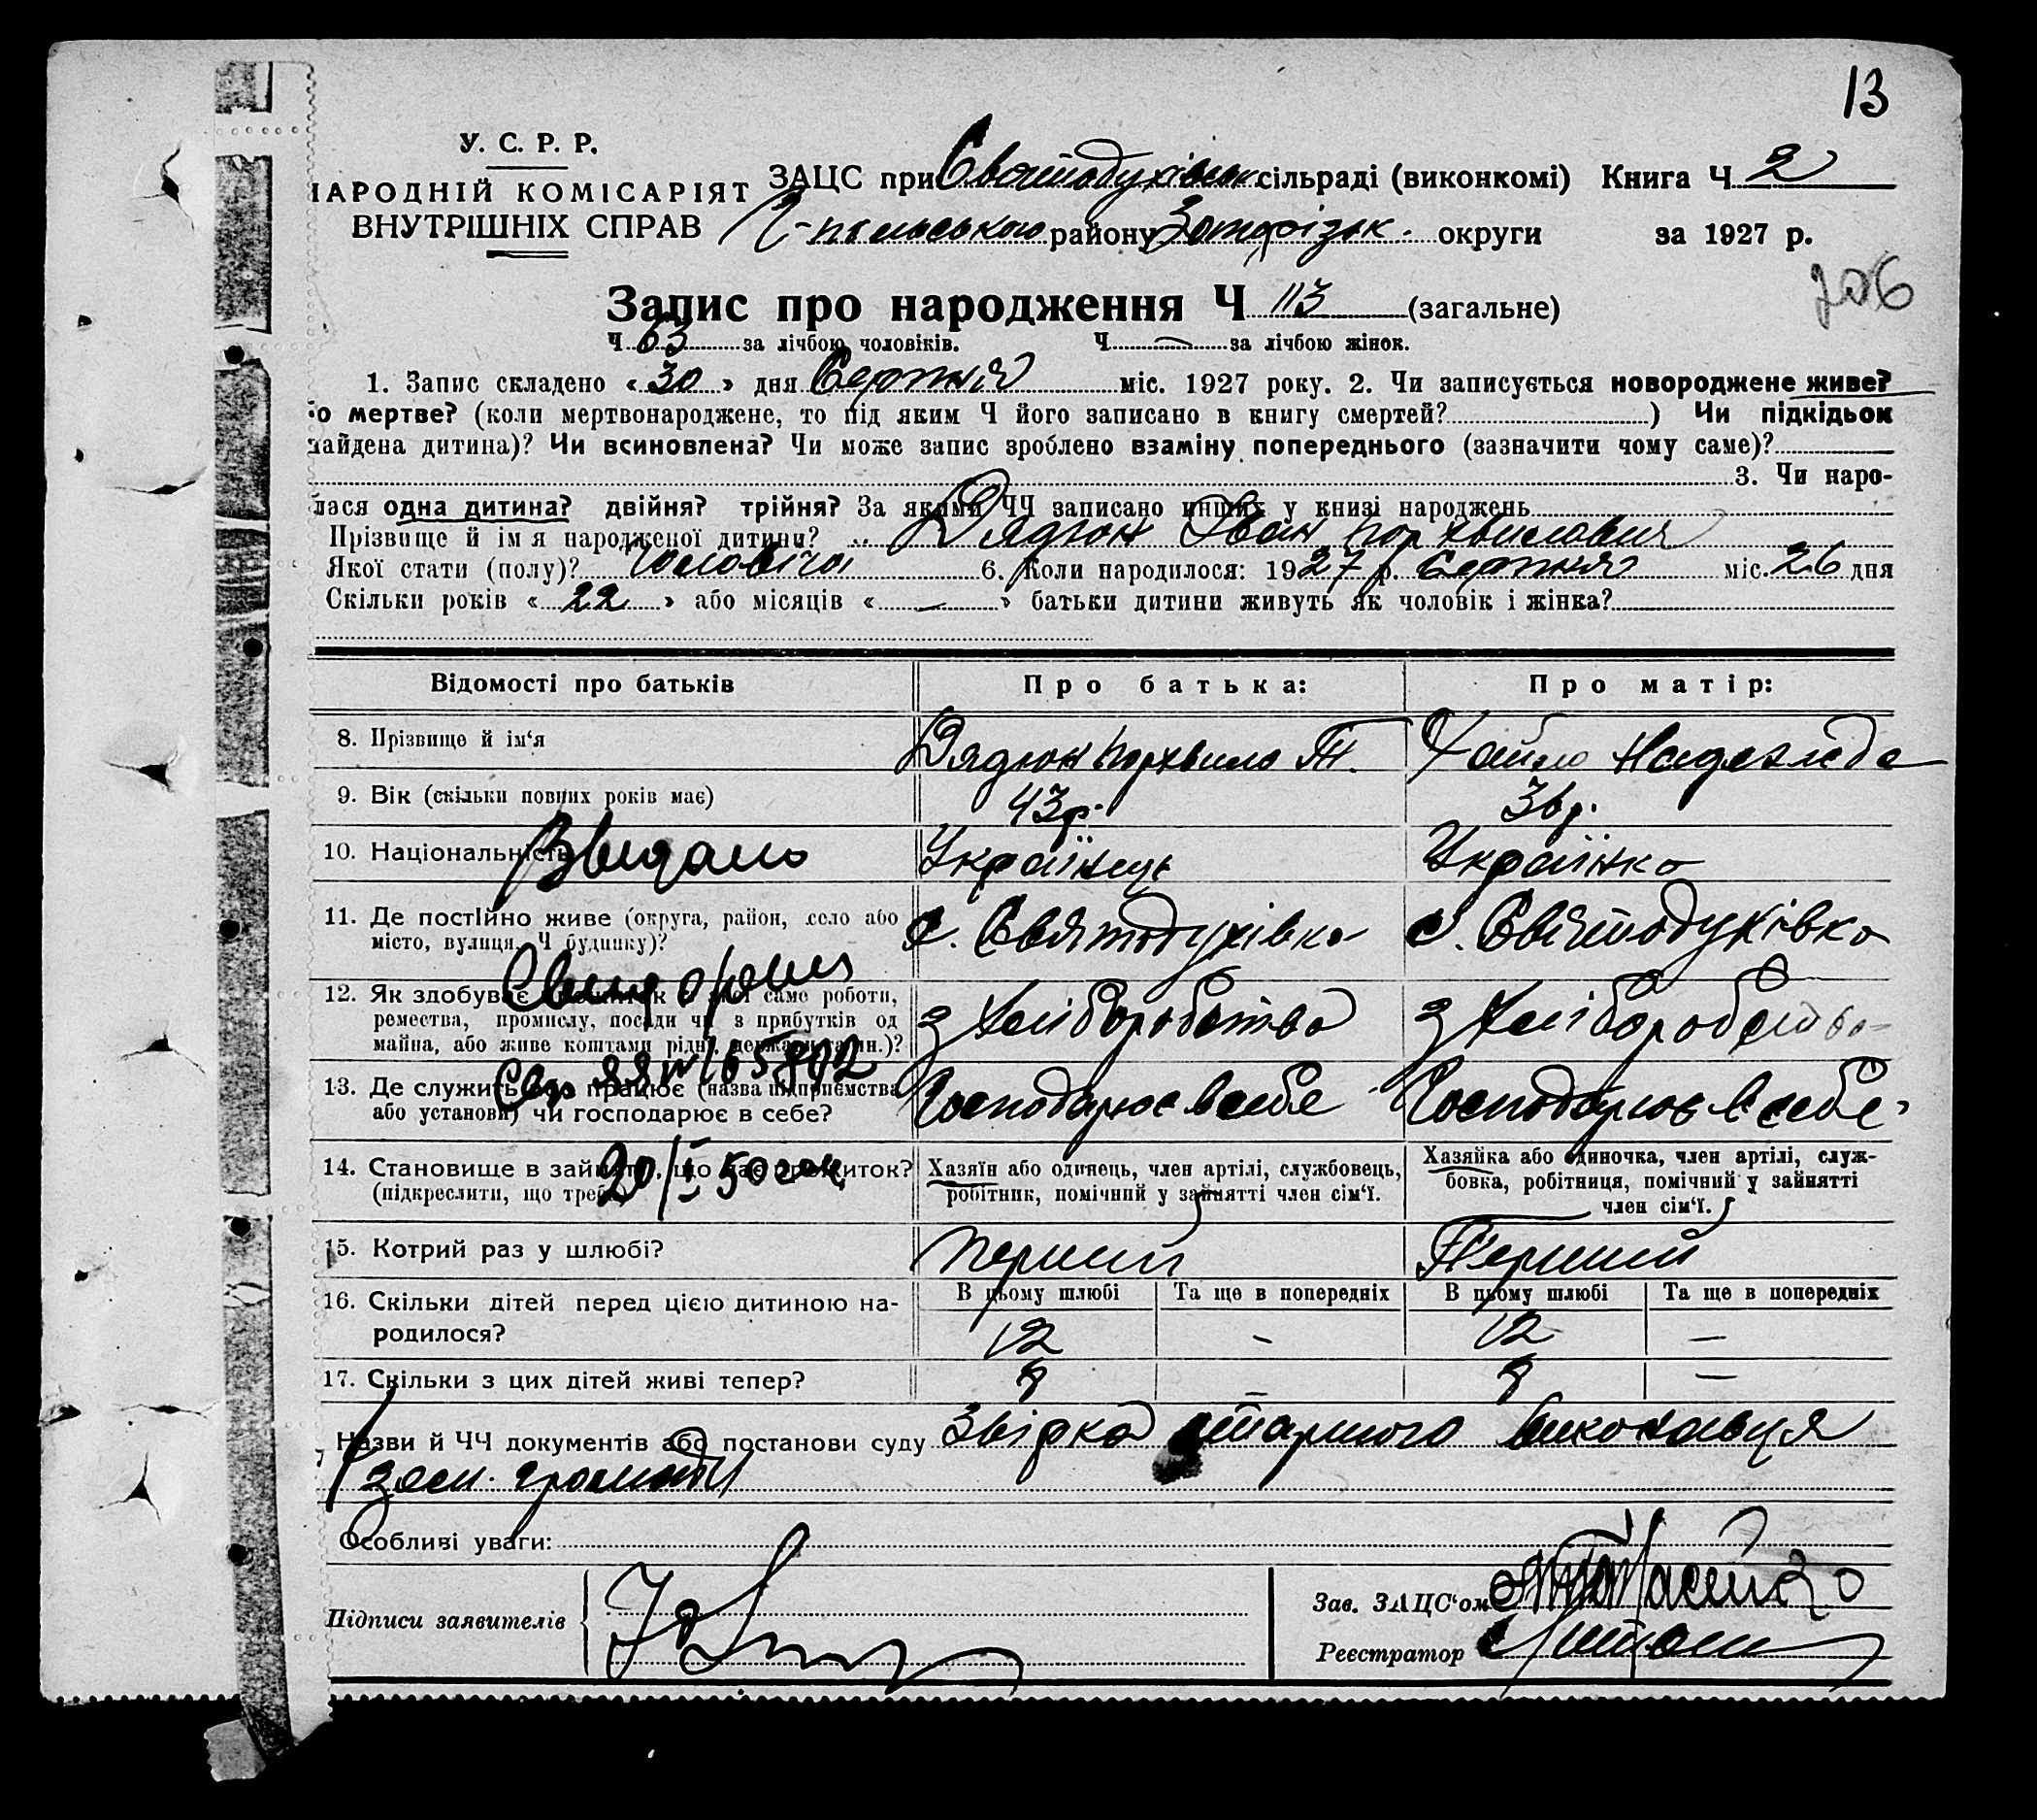 13
У. С. Р. Р.
НАРОДНІЙ КОМІСАРІЯТ
ВНУТРІШНІХ СПРАВ
ЗАЦС при Святодухівськ. сільраді (виконкомі) Книга Ч 2
-пільського району Запоріжк. округи за 1927 р.
706
Запис про народження Ч 113 (загальне)
Ч 63 за лічбою чоловіків. Ч — за лічбою жінок.
1. Запис складено «30» дня Серпня міс. 1927 року. 2. Чи записується новороджене живе?
бо мертве? (коли мертвонароджене, то під яким Ч його записано в книгу смертей? ) Чи підкідьок
найдена дитина)? Чи всиновлена? Чи може запис зроблено взаміну попереднього (зазначити чому саме)?
3. Чи наро-
лася одна дитина? двійня? трійня? За якими ЧЧ записано инших у книзі народжень
Прізвище й ім я народженої дитини? Дядюн Іван Порхвилович
Якої стати (полу)? Чоловічої 6. Коли народилося: 1927 р. Серпня міс. 26 дня
Скільки років «22» або місяців «—» батьки дитини живуть як чоловік і жінка?
Відомості про батьків Про батька: Про матір:
8. Прізвище й ім'я Дядюн Порхвило Т. Надежда
9. Вік (скільки повних років має) 43 р. 36 р.
10. Національність Українець Українка
Видано
11. Де постійно живе (округа, район, село або
місто, вулиця, Ч будинку)? с. Святодухівка с. Святодухівка
12. Як здобуває прожиток з якої саме роботи,
ремества, промислу, посади чи з прибутків од
майна, або живе коштами рідні, держави та ин.)? з Хліборобства з Хліборобства
13. Де служить або працює (назва підприємства
або установи) чи господарює в себе? Господарює в себе Господарює в себе
14. Становище в зайнятті, що дає прожиток?
(підкреслити, що треба)
20/I 50 года
Хазяїн або одинець, член артілі, службовець,
робітник, помічний у зайнятті член сім'ї.
Хазяйка або одиночка, член артілі, служ-
бовка, робітниця, помічний у зайнятті
член сім'ї.
15. Котрий раз у шлюбі? Перший Перший
В цьому шлюбі Та ще в попередніх В цьому шлюбі Та ще в попередніх
16. Скільки дітей перед цією дитиною на-
родилося? 12 – 12 —
17. Скільки з цих дітей живі тепер? 8 — 8 —
Назви й ЧЧ документів або постанови суду Звірка старшого виконавця
зем. громади
Особливі уваги:
Підписи заявителів
Зав. ЗАЦС'ом
Реєстратор